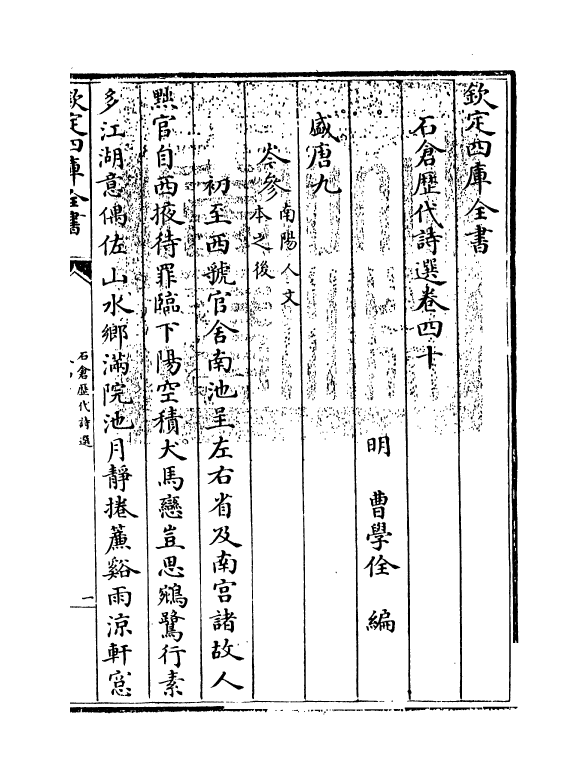 欽定四庫全書
石倉歷代詩選卷四十
明 曹學佺 編
盛唐九
岑參 南陽人文
本之後
初至西虢官舍南池呈左右省及南宫諸故人
黜官自西掖待罪臨下陽空積犬馬戀豈思鵷鷺行素
多江湖意偶佐山水鄉滿院池月靜捲簾谿雨涼軒窓
欽定四庫全書
石倉歷代詩選
一